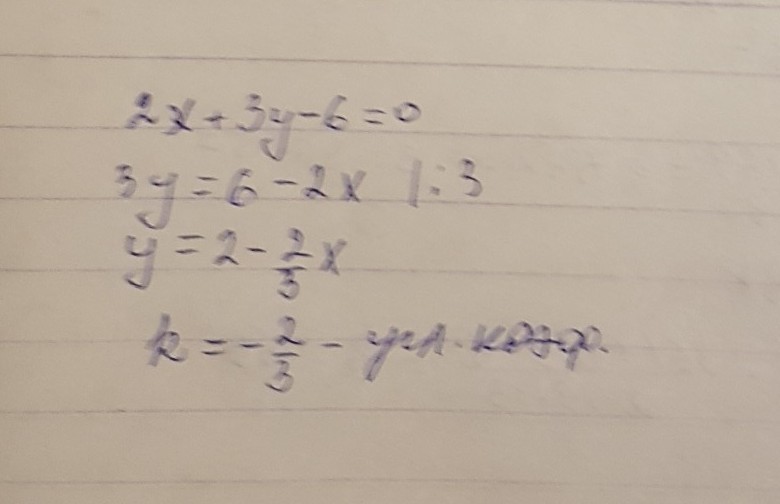 2x + 3y - 6 = 0
3y = 6 - 2x |:3
y = 2 - 2/3 x
k = - 2/3 - угл. коэф.